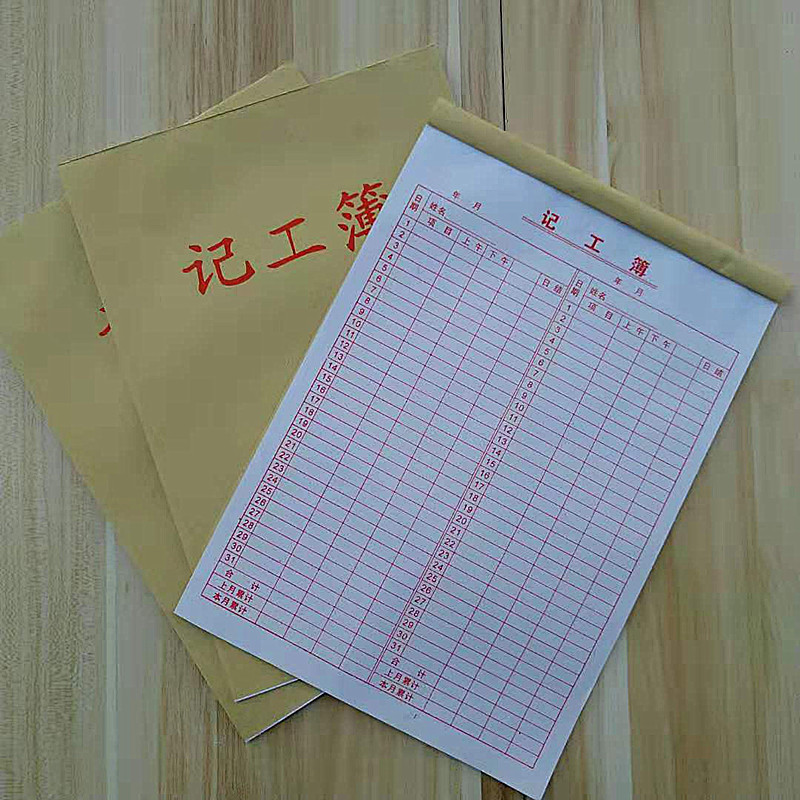 记工簿
记工簿
年 月
日期 姓名
项目 上午 下午 日结
1
2
3
4
5
6
7
8
9
10
11
12
13
14
15
16
17
18
19
20
21
22
23
24
25
26
27
28
29
30
31
合计
上月累计
本月累计
年 月
日期 姓名
项目 上午 下午 日结
1
2
3
4
5
6
7
8
9
10
11
12
13
14
15
16
17
18
19
20
21
22
23
24
25
26
27
28
29
30
31
合计
上月累计
本月累计